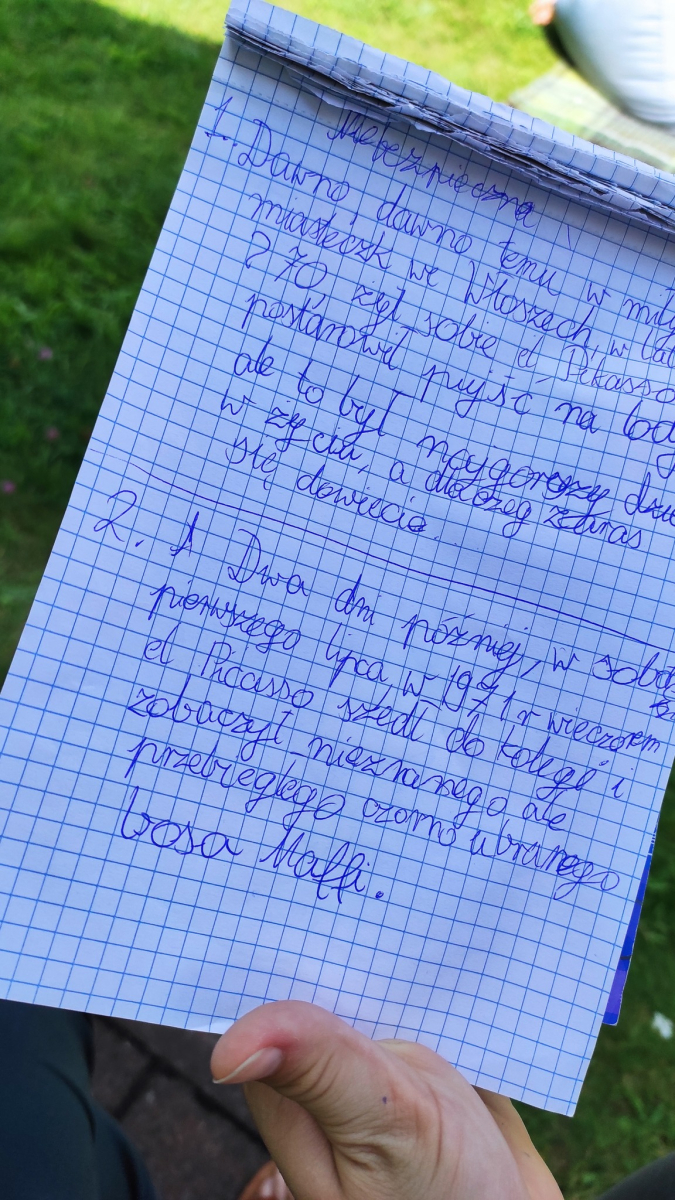 Niebezpieczna
1. Dawno, dawno temu w
miasteczk we Włoszech, w
70, żył sobie el Pikasso
postanowił pujść na
ale to był najgorszy
w życiu, a dlaczeg zaras
się dowiecie.
2. A Dwa dni później, w
pierwszego lipca w 1971 r wieczorem
el Picasso szedł do kolegi i
zobaczył nieznanego, ale
przebiegłego czarno ubranego
bosa Maffi.